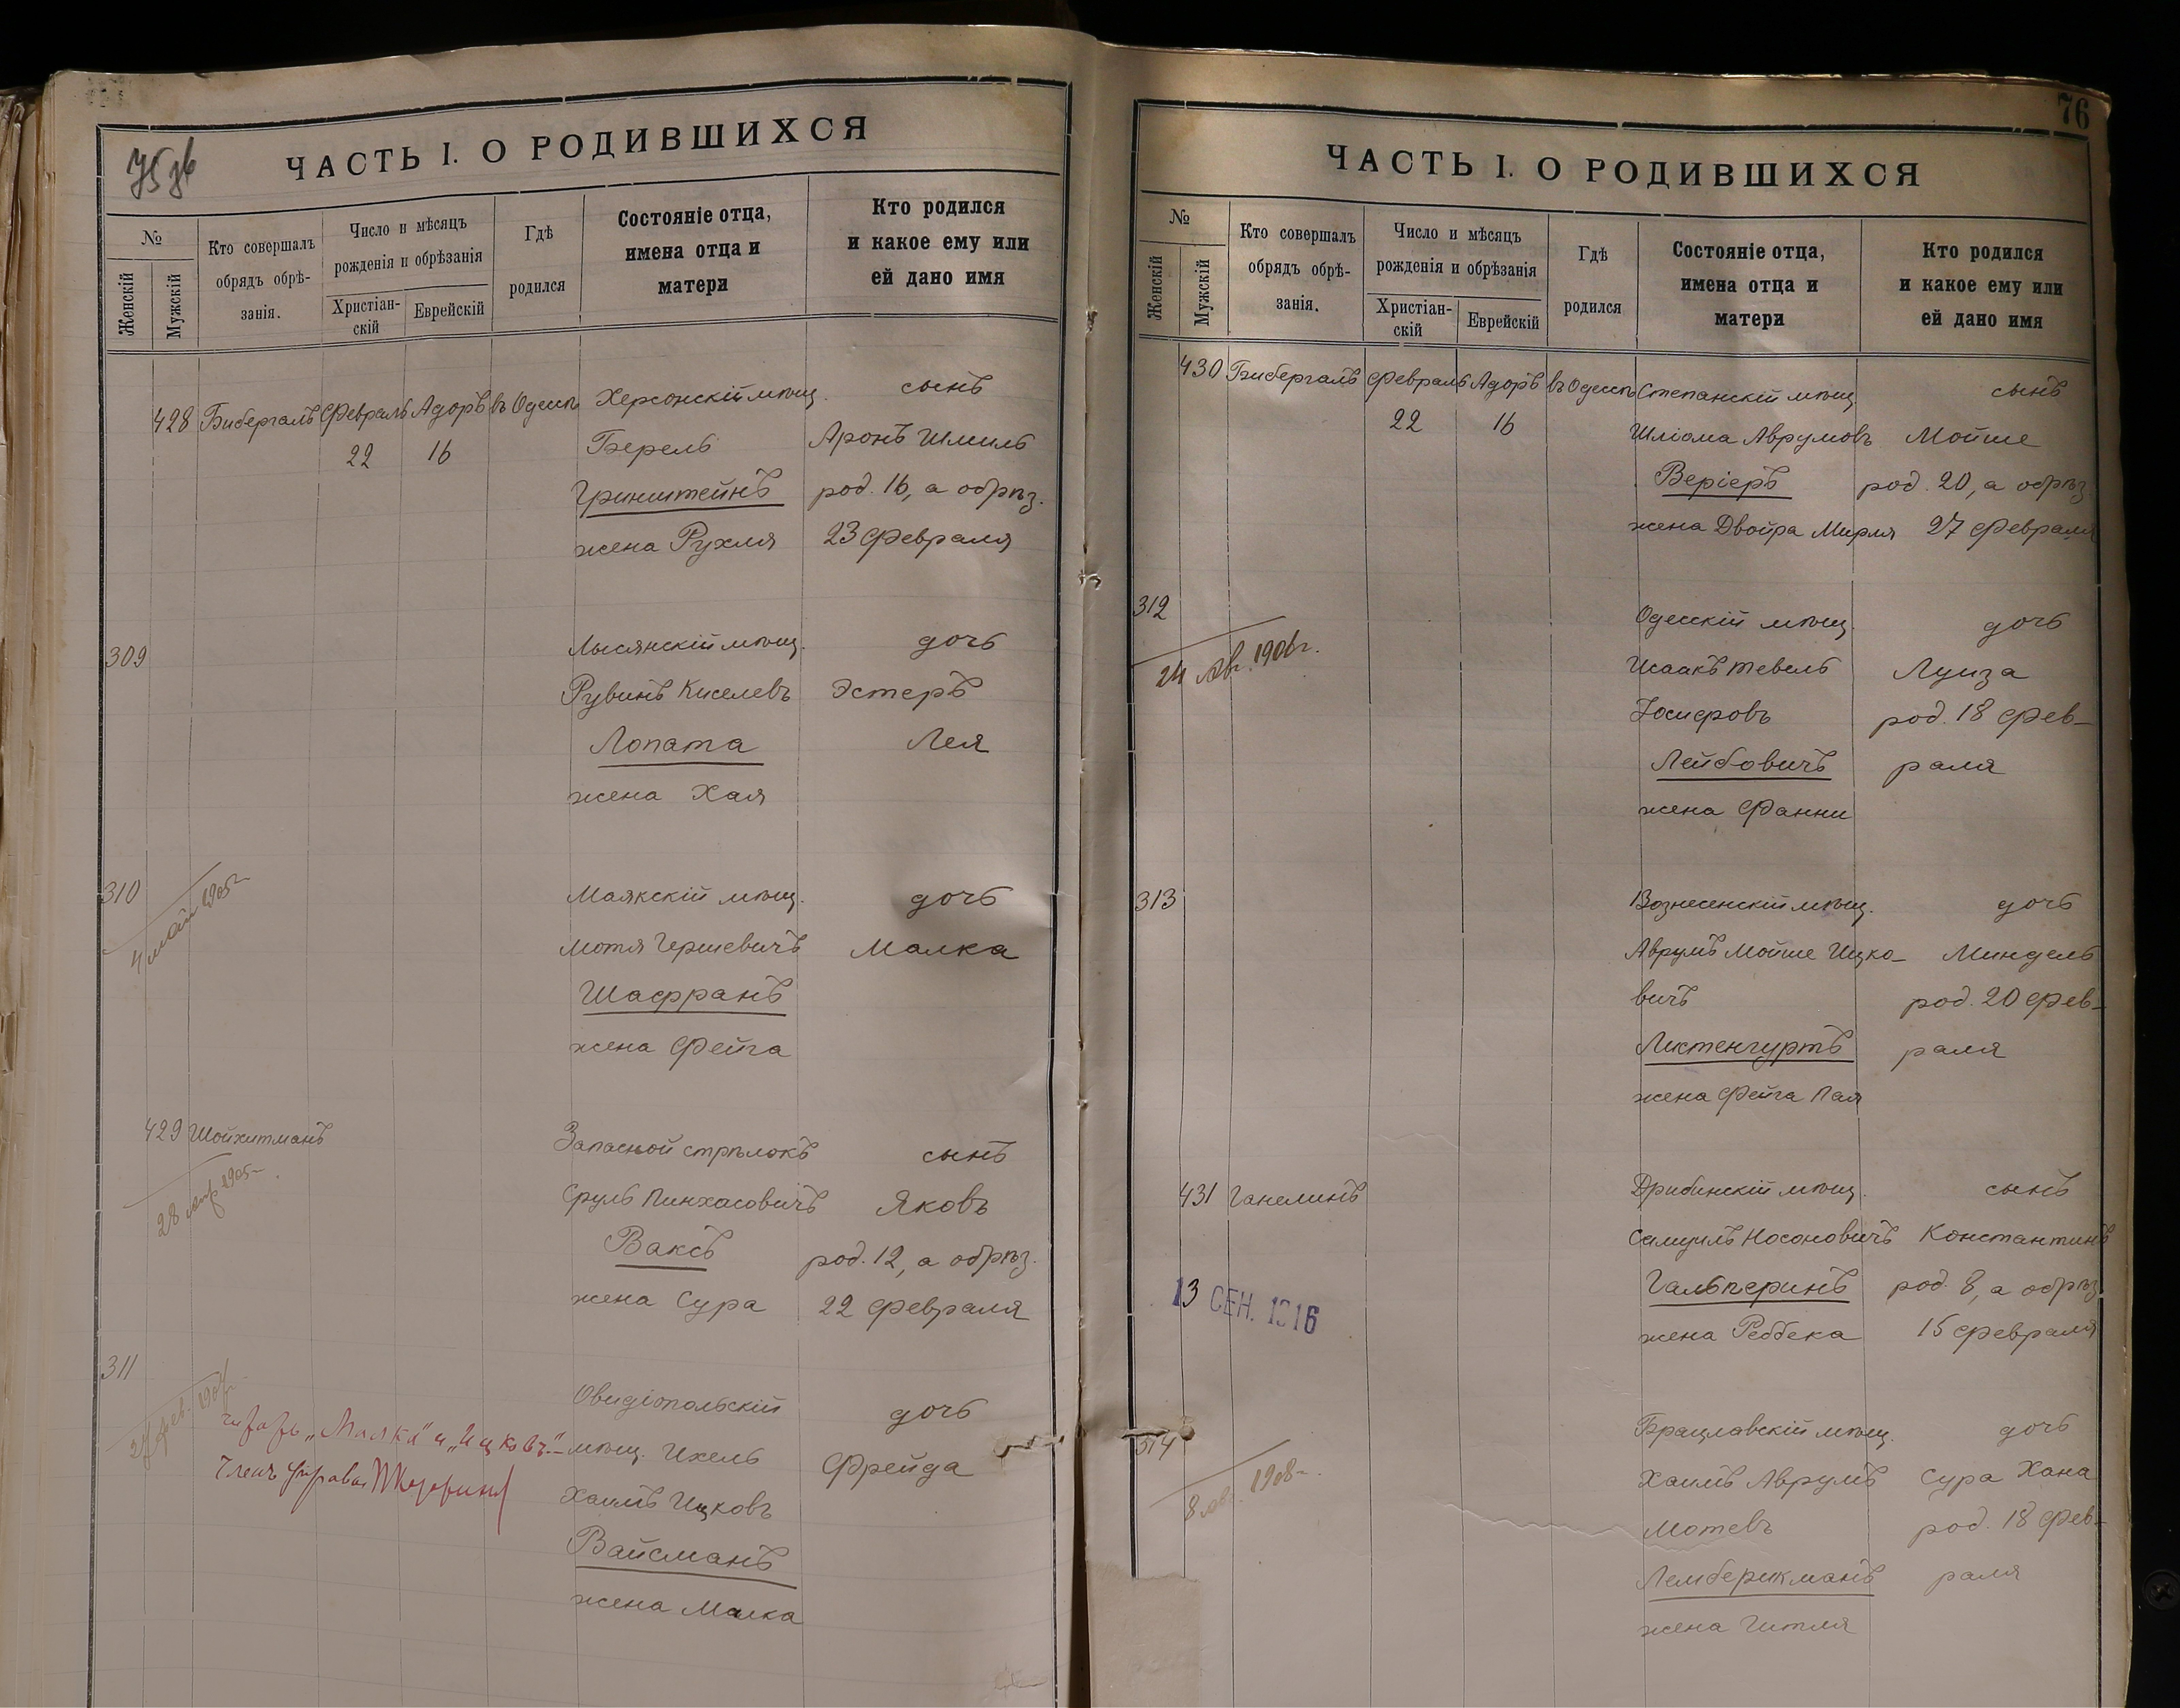 75 зв
ЧАСТЬ I. О РОДИВШИХСЯ
№
Женскій
Мужскій
Кто совершалъ
обрядъ обрѣ-
занія.
Число и мѣсяцъ
рожденія и обрѣзанія
Христіан-
скій
Еврейскій
Гдѣ
родился
Состояніе отца,
имена отца и
матери
Кто родился
и какое ему или
ей дано имя
428 Бибергалъ Февраль Адоръ въ Одессѣ Херсонскій мѣщ. сынъ
22 16 Берель Аронъ Шмиль
Гринштейнъ род. 16, а обрѣз.
жена Рухля 23 Февраля
309 Лысянскій мѣщ. дочь
Рувинъ Киселевъ Эстеръ
Лопата Лея
жена Хая
310 Маякскій мѣщ. дочь
4 май 1905 г.
Мотя Гершевичъ Малка
Шафранъ
жена Фейга
429 Шойхитманъ Запасной стрѣлокъ сынъ
28 апр. 1905
Сруль Пинхасовичъ Яковъ
Ваксъ род. 12, а обрѣз.
жена Сура 22 Февраля
311 Овидіопольскій дочь
мѣщ. Ихель Фрейда
„Малка" и „Ицковъ".
Членъ Управы
Хаимъ Ицковъ
Вайсманъ
жена Малка
76
ЧАСТЬ I. О РОДИВШИХСЯ
№
Женскій
Мужскій
Кто совершалъ
обрядъ обрѣ-
занія.
Число и мѣсяцъ
рожденія и обрѣзанія
Христіан-
скій
Еврейскій
Гдѣ
родился
Состояніе отца,
имена отца и
матери
Кто родился
и какое ему или
ей дано имя
430 Бибергалъ Февраль Адоръ въ Одессѣ Степанскій мѣщ. сынъ
22 16 Шліома Аврумовъ Мойше
Веріеръ род. 20, а обрѣз.
жена Двойра Мирля 27 Февраля
312 Одесскій мѣщ. дочь
24 1906 г.
Исаакъ Тевель Луиза
Іосифовъ род. 18 Фев-
Лейбовичъ раля
жена Фанни
313 Вознесенскій мѣщ. дочь
Аврумъ Мойше Ицко- Миндель
вичъ род. 20 Фев-
Ликтенгуртъ раля
жена Фейга Пая
431 Ганелинъ Дрибинскій мѣщ. сынъ
Самуилъ Носоновичъ Константинъ
13 СЕН. 1916
Гальперинъ род. 8, а обрѣз.
жена Реббека 15 Февраля
314 Брацлавскій мѣщ. дочь
8 1908
Хаимъ Аврумъ Сура Хана
Мотевъ род. 18 Фев-
Лемберикманъ раля
жена Гитля